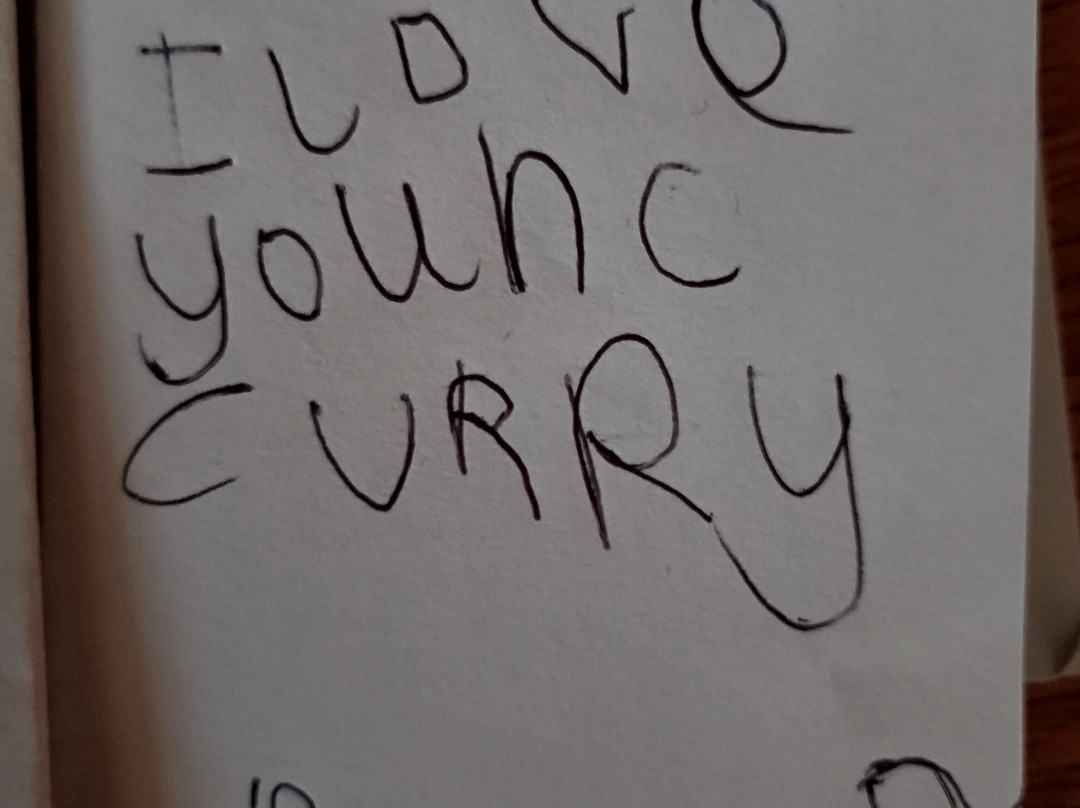 I LOVe
younc
CURRy